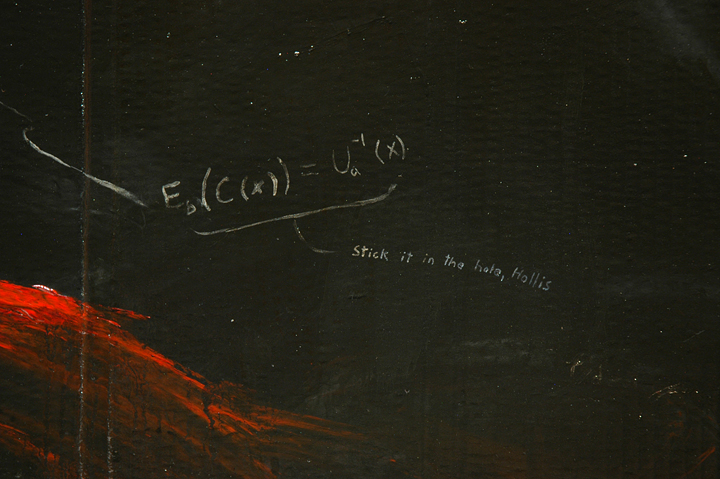 E_b(C(x)) = U_a^{-1}(x)
Stick it in the hole, Hollis